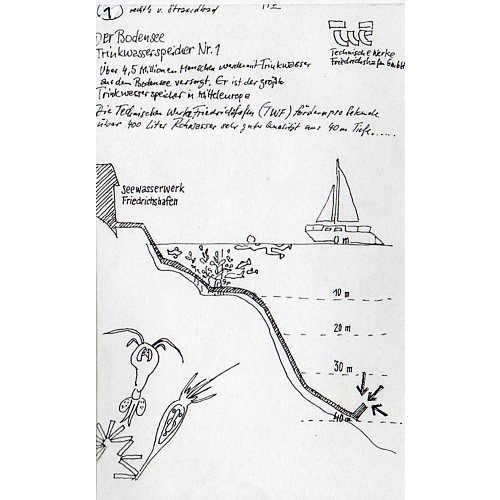 1 rechts v. Strandbad
Der Bodensee
Trinkwasserspeicher Nr. 1
TWF
Technische Werke
Friedrichshafen GmbH
Über 4,5 Millionen Menschen werden mit Trinkwasser
aus dem Bodensee versorgt. Er ist der größte
Trinkwasserspeicher in Mitteleuropa
Die Technischen Werke Friedrichshafen (TWF) fördern pro Sekunde
über 400 Liter Rohwasser sehr guter Qualität aus 40 m Tiefe.....
Seewasserwerk
Friedrichshafen
0 m
10 m
20 m
30 m
40 m